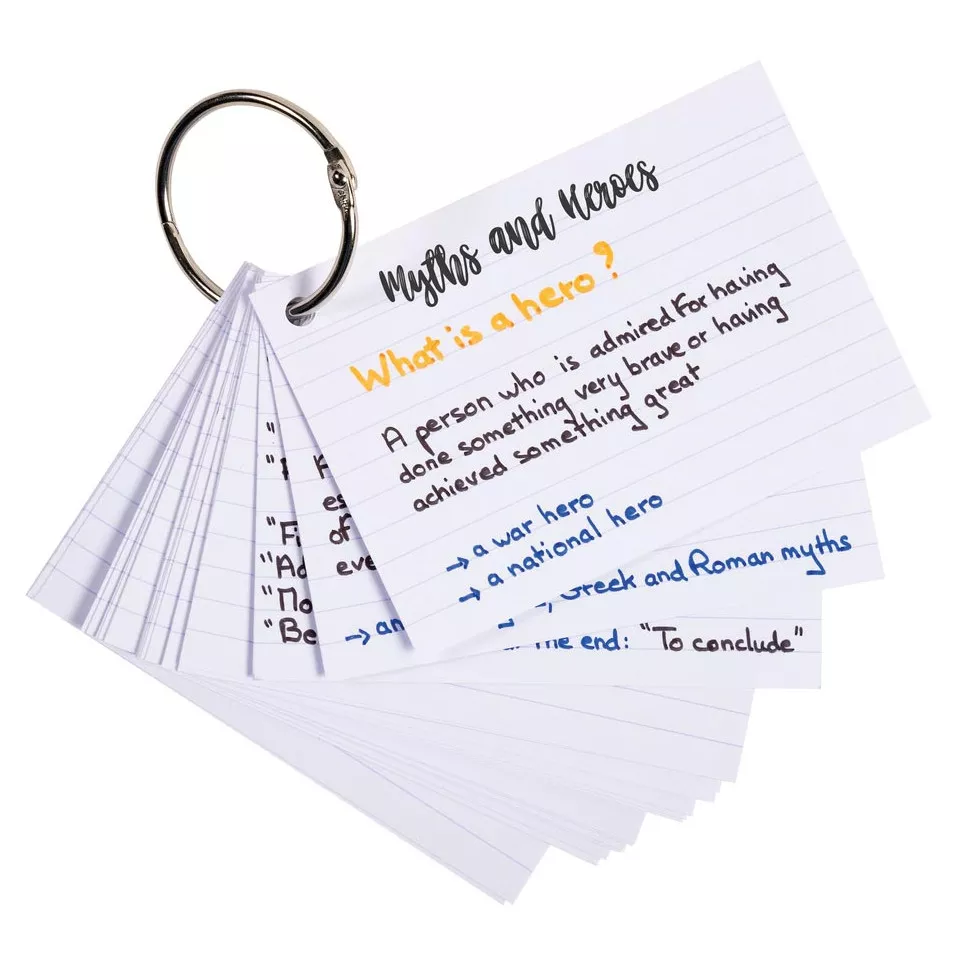 Myths and Heroes
What is a hero?
A person who is admired for having
done something very brave or having
achieved something great
→ a war hero
→ a national hero
es
of
eve
→ an
, Greek and Roman myths
"
"
"Fi
"Ad
"Mo
"Be
the end: "To conclude"